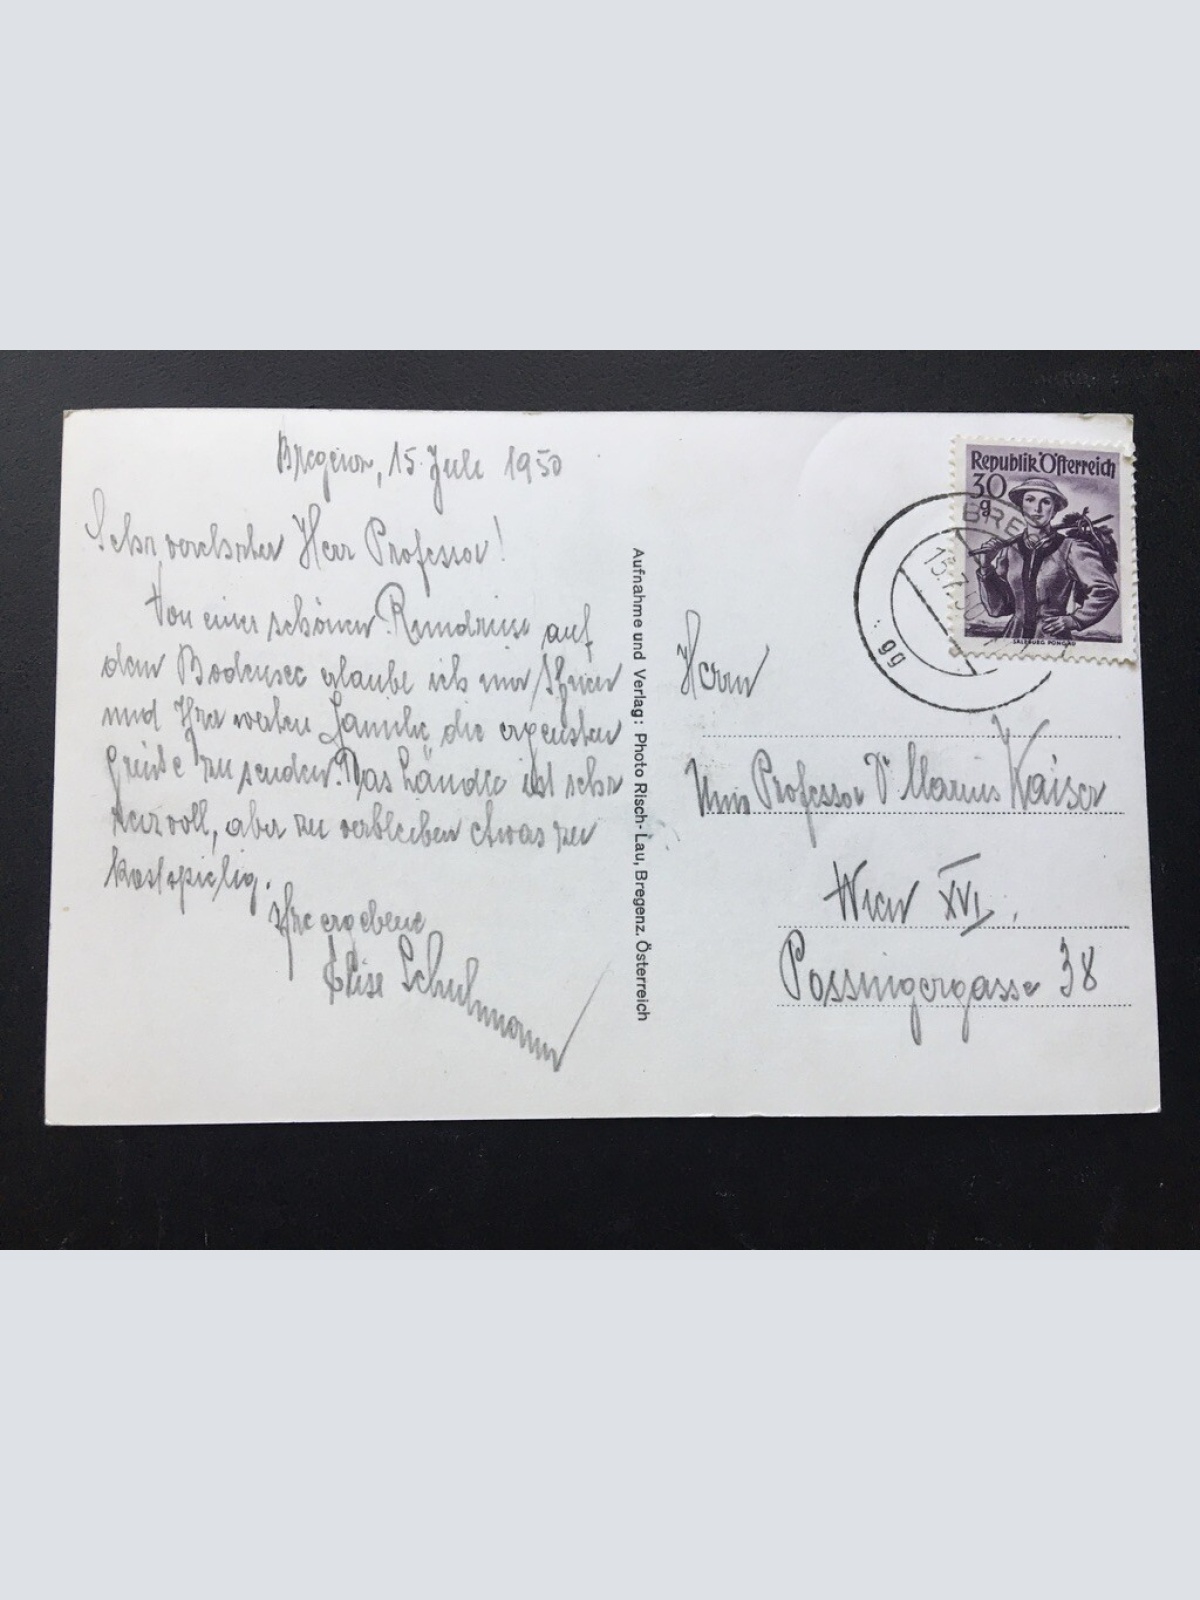 Bregenz, 15. Juli 1950
Sehr verehrter Herr Professor!
Von einer schönen Rundreise auf
dem Bodensee erlaube ich mir Ihnen
und Ihrer werten Familie die ergensten
Grüße zu senden. Das Ländle ist sehr
reizvoll, aber zu verbleiben etwas zu
kostspielig.
Ihre ergebene
Elise Schuhmann
Aufnahme und Verlag: Photo Risch-Lau, Bregenz. Österreich
Republik Österreich
30
g
SALZBURG PONGAU
BRE
13.7.50
gg
Herrn
Univ Professor Dr Marius Kaiser
Wien XVI.
Possingergasse 38